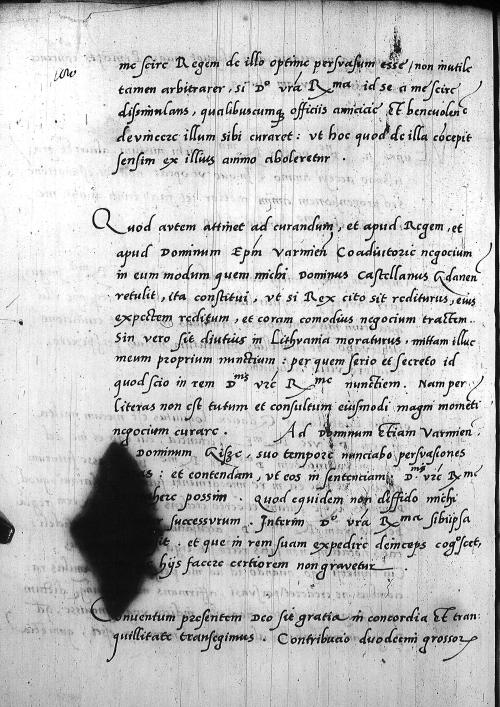 me scire Regem de illo optime persvasum esse, non inutile
tamen arbitrarer, si Do vra Rma id se a me scire
dissimulans, qualibuscunq officiis amicicie Et benevolenc
devincere illum sibi curaret: vt hoc quod de illa concepit
sensim ex illius animo aboleretur.
Quod avtem attinet ad curandum, et apud Regem, et
apud Dominum Epm Varmien Coadiutorie negocium
in eum modum quem michi Dominus Castellanus Gdanen
retulit, ita constitui, vt si Rex cito sit rediturus, eius
expectem reditum, et coram comodius negocium tractem.
Sin vero sit diutius in Lithvania moraturus, mittam illuc
meum proprium nuncium: per quem serio et secreto id
quod scio in rem Dnis vre Rme nunctiem. Nam per
literas non est tutum et consultum eiusmodi magni momenti
negocium curare. Ad Dominum Etiam Varmien
Dominum Gisze, suo tempore nunciabo persvasiones
: et contendam, vt eos in sentenciam Dnis vre Rme
possim. Quod equidem non diffido michi
successurum. Interim Do vra Rma sibiipsa
sit. et que in rem suam expedire deinceps cogoscet,
hijs facere certiorem non gravetur
Conventum presentem Deo sit gratia in concordia Et tran
quillitate transegimus. Contribucio duodecim grossor